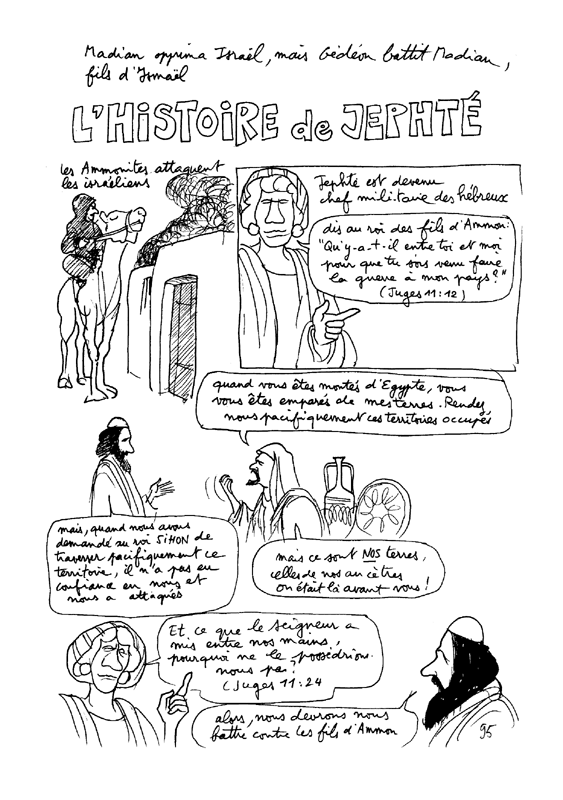 Madian opprima Israël, mais Gédéon battit Madian,
fils d'Ismaël
L'HiSTOiRE de JEPHTÉ
les Ammonites attaquent
les israéliens
Jephté est devenu
chef militaire des hébreux
dis au roi des fils d'Ammon:
"Qu'y-a-t-il entre toi et moi
pour que tu sois venu faire
la guerre à mon pays?"
(Juges 11:12)
quand vous êtes montés d'Egypte, vous
vous êtes emparés de mes terres. Rendez
nous pacifiquement ces territoires occupés
mais, quand nous avons
demandé au roi SiHON de
traverser pacifiquement ce
territoire, il n'a pas eu
confiance en nous et
nous a attaqués
mais ce sont NOS terres,
celles de nos ancètres
on était là avant vous!
Et ce que le seigneur a
mis entre nos mains,
pourquoi ne le possédrions-
nous pas?
(Juges 11:24
alors, nous devrons nous
battre contre les fils d'Ammon
95